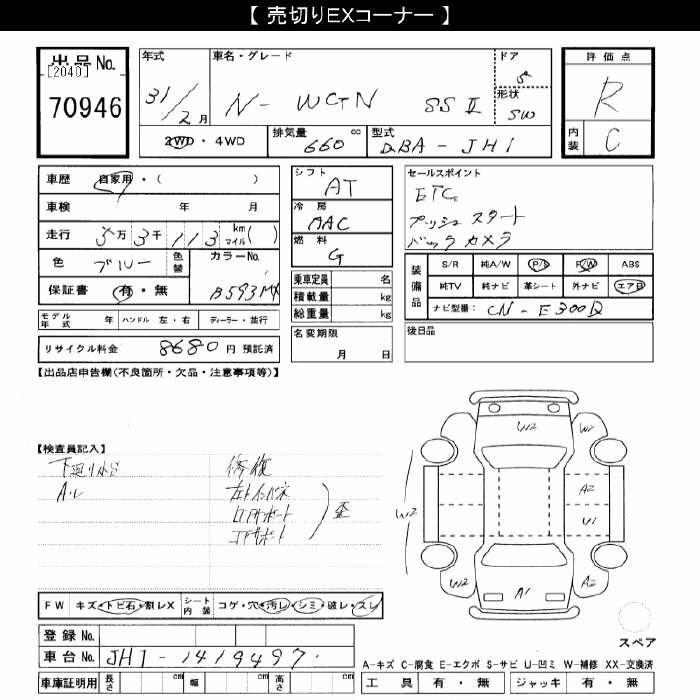 【 売切りEXコーナー 】
出品No.
[2040]
70946
年式 31/2月
車名・グレード N-WGN SSⅡ
ドア 5
形状 SW
2WD・4WD
排気量 660 cc
型式 DBA-JH1
評価点 R
内装 C
車歴 自家用・( )
車検 年 月
走行 5万3千113 km マイル( )
色 ブルー 色替 カラーNo. B593MX
保証書 有・無
モデル年式 年 ハンドル 左・右 ディーラー・並行
リサイクル料金 8680円 預託済
シフト AT
冷房 MAC
燃料 G
乗車定員 名
積載量 kg
総重量 kg
名変期限
月 日
セールスポイント
ETC
プッシュスタート
バックカメラ
装備品
S/R 純A/W P/S P/W ABS
純TV 純ナビ 革シート 外ナビ エアB
ナビ型番: CN-E300D
後日品
【出品店申告欄(不良箇所・欠品・注意事項等)】
【検査員記入】
下廻りサビ 修復
A・U 左トインパネ
ロアサポート
コアサポート
歪
FW キズ・トビ石・割レX シート内装 コゲ・穴・汚レ・シミ・破レ・スレ
登録No.
車台No. JH1-1419497
車庫証明用 長さ cm 幅 cm 高さ cm
W2
W2
A2
U1
W2
W2
A1
A2
スペア
A-キズ C-腐食 E-エクボ S-サビ U-凹ミ W-補修 XX-交換済
工具 有・無 ジャッキ 有・無